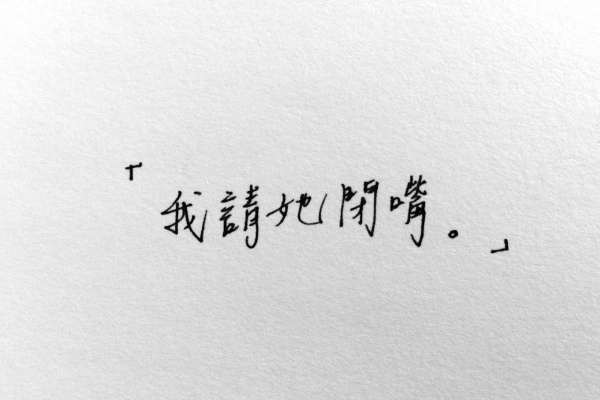 「我請她閉嘴。」